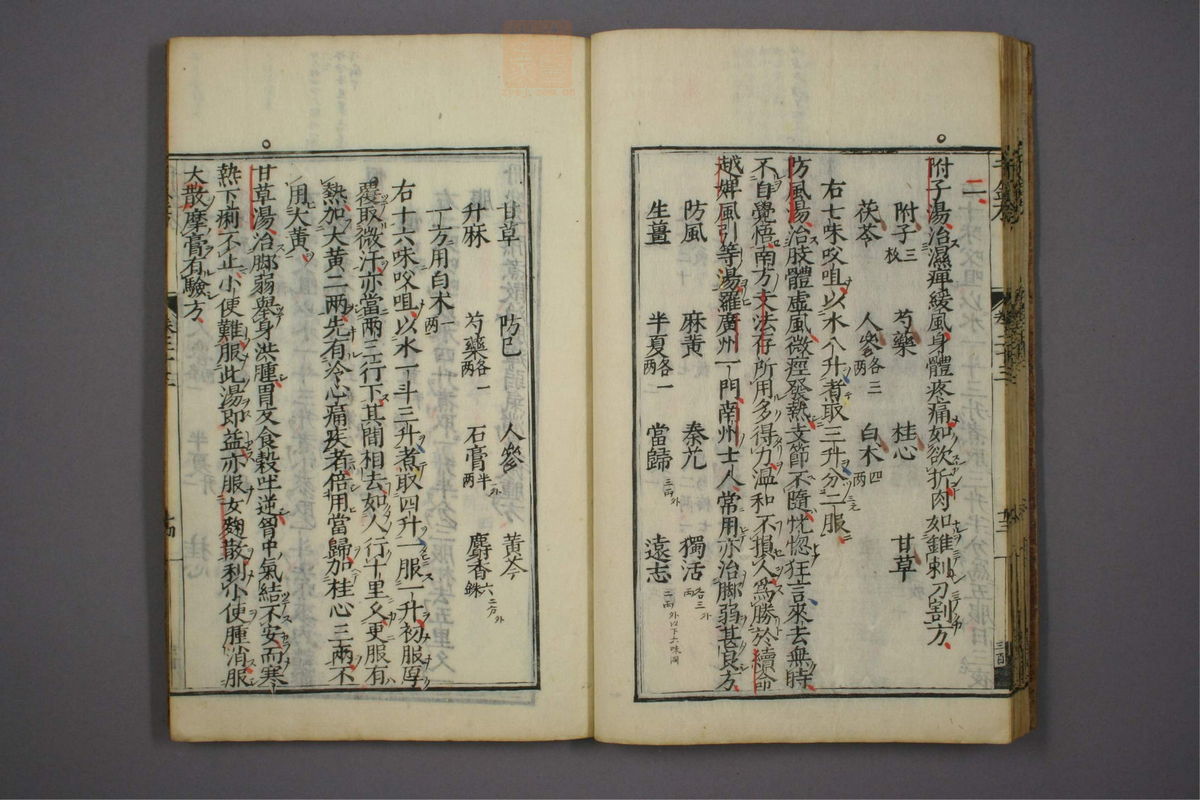 附子湯治濕痺緩風身體疼痛如欲折肉如錐刺刀割方
附子三枚 芍藥 桂心 甘草
茯苓 人參各三兩 白朮四兩
右七味㕮咀以水八升煮取三升分二服
防風湯治肢體虛風微痙發熱支節不隨恍惚狂言來去無時
不自覺悟南方支法存所用多得力溫和不損人爲勝於續命
越婢風引等湯羅廣州一門南州士人常用亦治脚弱甚良方
防風 麻黃 秦艽 獨活各三兩
生薑 半夏各一兩 當歸 遠志
甘草 防已 人參 黃芩
升麻 芍藥各一兩 石膏半兩 麝香六銖
右十六味㕮咀以水一斗三升煮取四升一服一升初服厚
覆取微汗亦當兩三行下其間相去如人行十里久更服有
熱加大黃二兩先有冷心痛疾者倍用當歸加桂心三兩不
用大黃
一方用白朮一兩
甘草湯治脚弱舉身洪腫胃反食穀吐逆胷中氣結不安而寒
熱下痢不止小便難服此湯即益亦服女麴散利小便腫消服
大散摩膏有驗方
卷二十三